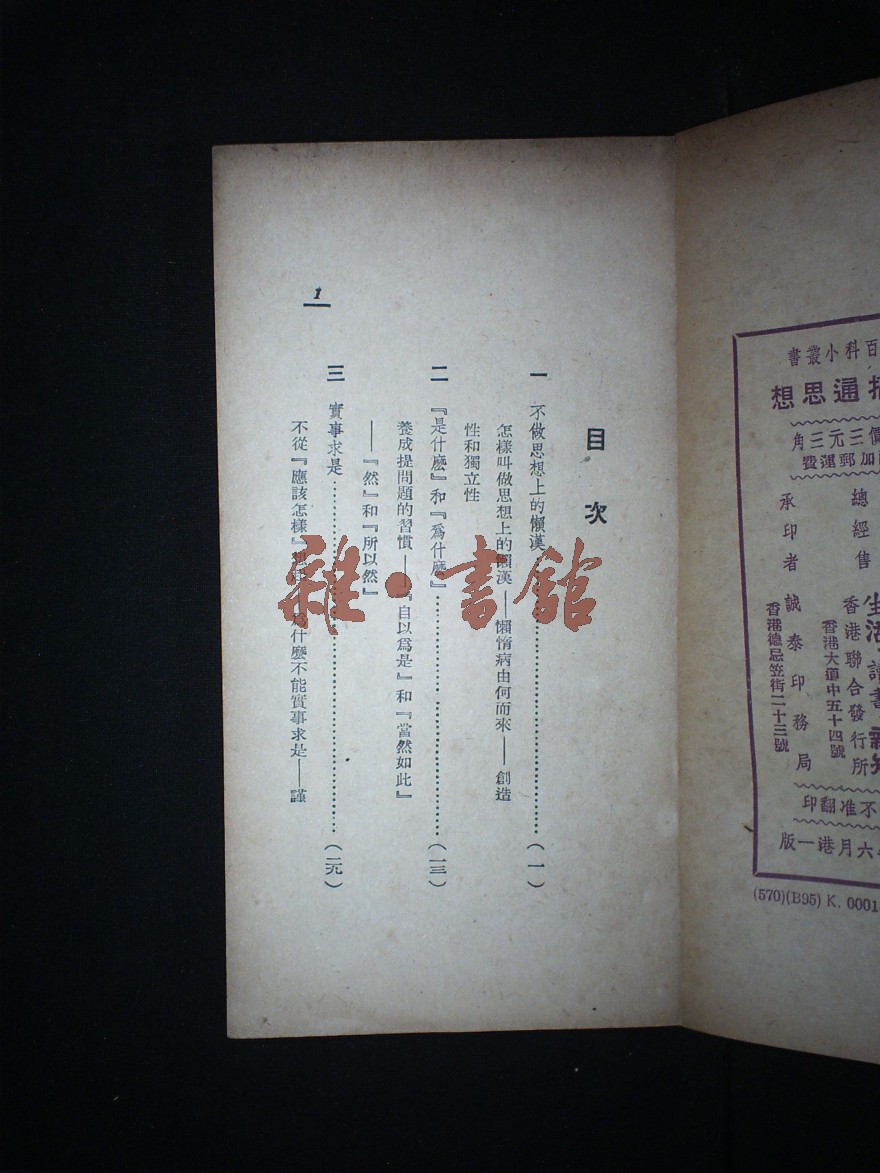 百科小叢書
通思想
價三元三角
加郵運費
總經售
生活讀書新知
香港聯合發行所
香港大道中五十四號
承印者
誠泰印務局
香港德忌笠街二十三號
不准翻印
六月港一版
(570)(B95) K. 0001
目次
一 不做思想上的懶漢……(一)
怎樣叫做思想上的懶漢——懶惰病由何而來——創造
性和獨立性
二 『是什麽』和『爲什麽』……(一三)
養成提問題的習慣——『自以爲是』和『當然如此』
——『然』和『所以然』
三 實事求是……(二九)
不從『應該怎樣』
爲什麽不能實事求是——謹
1
雜·書館